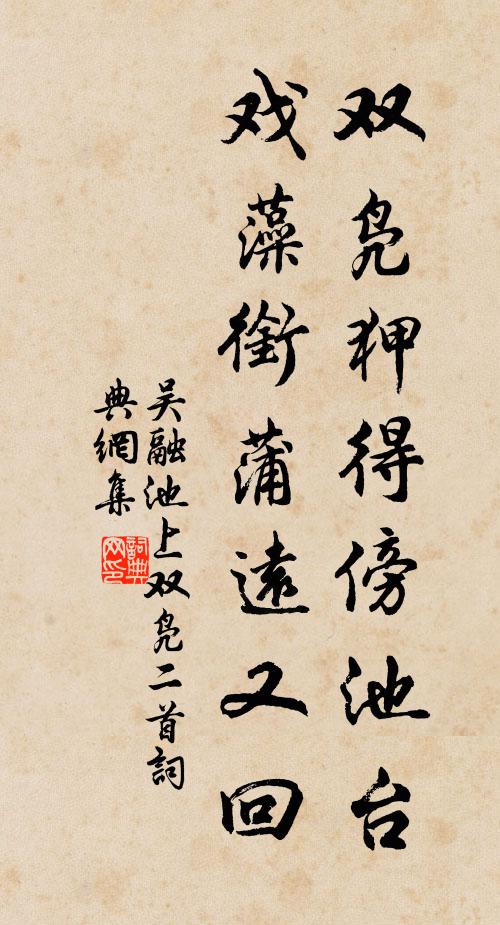 双凫狎得傍池台
戏藻銜蒲遠又回
吴融池上双凫二首詞
典網集
詞典
网印